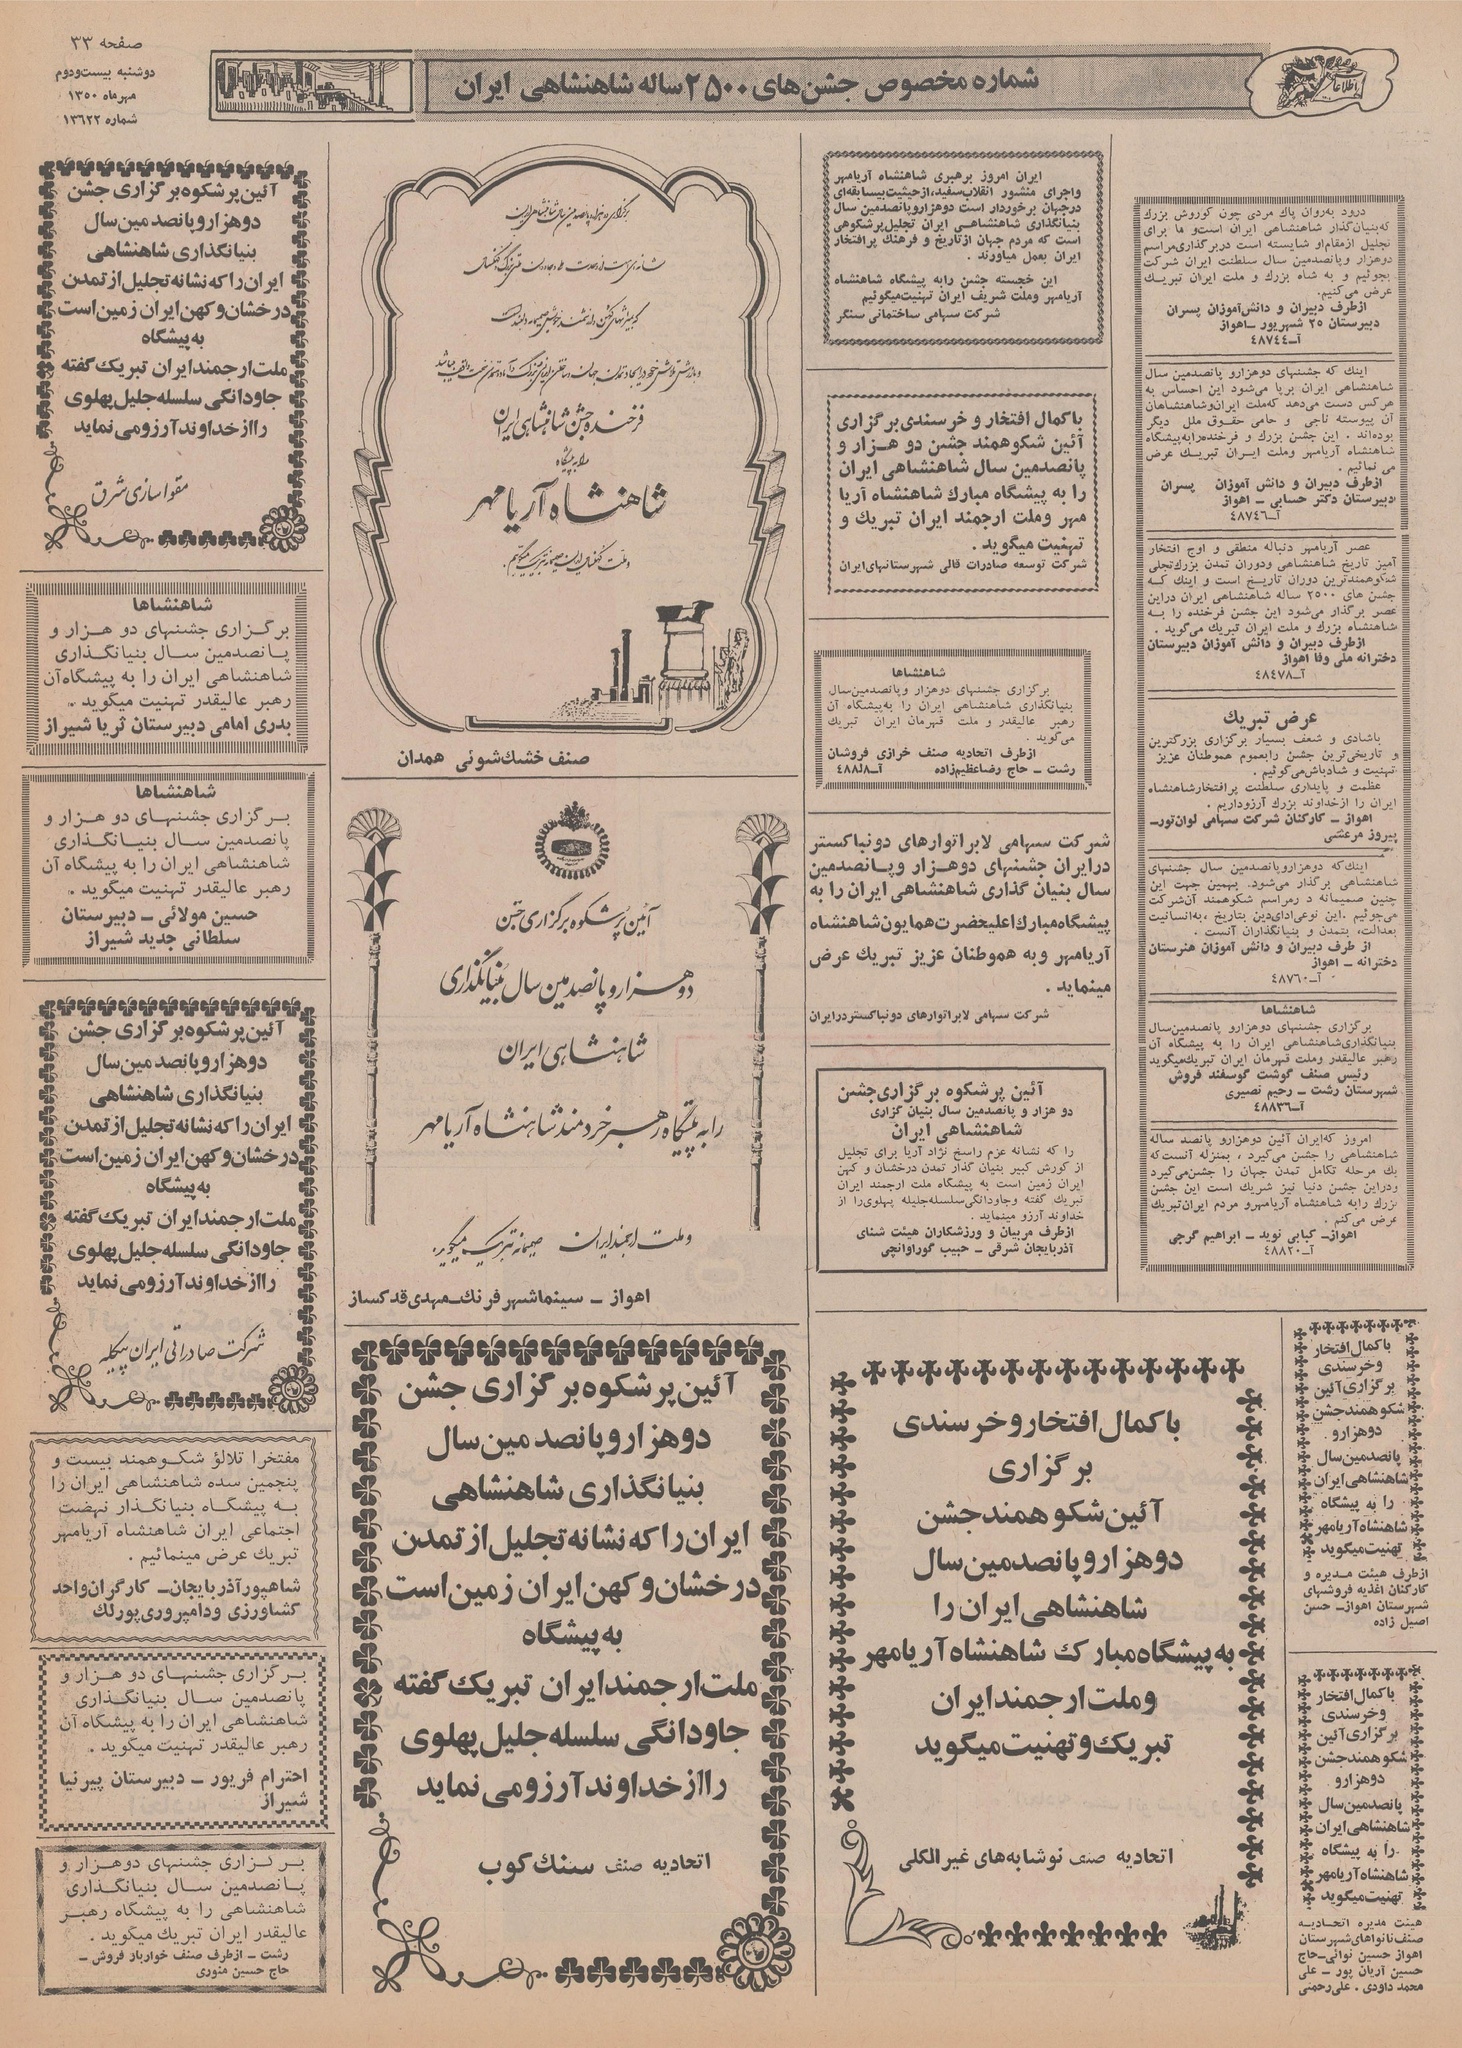 صفحه ۳۳
دوشنبه بیست‌ودوم
مهرماه ۱۳۵۰
شماره ۱۳۶۲۲
شماره مخصوص جشن‌های ۲۵۰۰ ساله شاهنشاهی ایران
اطلاعات
درود به‌روان پاك مردی چون کوروش بزرگ
که‌بنیان‌گذار شاهنشاهی ایران است‌و ما برای
تجلیل ازمقام‌او شایسته است دربرگذاری‌مراسم
دوهزار وپانصدمین سال سلطنت ایران شرکت
بجوئیم و به شاه بزرك و ملت ایران تبریك
عرض می‌کنیم.
ازطرف دبیران و دانش‌آموزان پسران
دبیرستان ۲۵ شهریور ـ اهواز
آـ ۴۸۷۴۴
اینك که جشنهای دوهزارو پانصدمین سال
شاهنشاهی ایران برپا می‌شود این احساس به
هرکس دست می‌دهد که‌ملت ایران‌وشاهنشاهان
آن پیوسته ناجی و حامی حقوق ملل دیگر
بوده‌اند . این جشن بزرك و فرخنده‌رابه‌پیشگاه
شاهنشاه آریامهر وملت ایران تبریك عرض
می نمائیم .
ازطرف دبیران و دانش آموزان پسران
دبیرستان دکتر حسابی ـ اهواز
آـ ۴۸۷۴۶
عصر آریامهر دنباله منطقی و اوج افتخار
آمیز تاریخ شاهنشاهی ودوران تمدن بزرك‌تجلی
شکوهمندترین دوران تاریخ است و اینك که
جشن های ۲۵۰۰ ساله شاهنشاهی ایران دراین
عصر برگذار می‌شود این جشن فرخنده را به
شاهنشاه بزرك و ملت ایران تبریك می‌گوید .
ازطرف دبیران و دانش آموزان دبیرستان
دخترانه ملی وفا اهواز
آـ ۴۸۴۷۸
عرض تبریك
باشادی و شعف بسیار برگزاری بزرگترین
و تاریخی‌ترین جشن رابعموم هموطنان عزیز
تهنیت و شادباش‌می‌گوئیم .
عظمت و پایداری سلطنت پرافتخارشاهنشاه
ایران را ازخداوند بزرك آرزوداریم .
اهواز ـ کارکنان شرکت سهامی لوان‌تورـ
پیروز مرعشی
اینك‌که دوهزاروپانصدمین سال جشنهای
شاهنشاهی برگذار می‌شود. بهمین جهت این
چنین صمیمانه د رمراسم شکوهمند آن‌شرکت
می‌جوئیم .این نوعی‌ادای‌دین بتاریخ ،به‌انسانیت
بعدالت، بتمدن و بنیانگذاران آنست .
از طرف دبیران و دانش آموزان هنرستان
دخترانه ـ اهواز
آـ ۴۸۷۶۰
شاهنشاها
برگزاری جشنهای دوهزارو پانصدمین‌سال
بنیانگذاری‌شاهنشاهی ایران را به پیشگاه آن
رهبر عالیقدر وملت قهرمان ایران تبریك‌میگوید
رئیس صنف گوشت گوسفند فروش
شهرستان رشت ـ رحیم نصیری
آـ ۴۸۸۳۶
امروز که‌ایران آئین دوهزارو پانصد ساله
شاهنشاهی را جشن می‌گیرد ، بمنزله آنست‌که
یك مرحله تکامل تمدن جهان را جشن‌می‌گیرد
ودراین جشن دنیا نیز شریك است این جشن
بزرك رابه شاهنشاه آریامهرو مردم ایران‌تبریك
عرض می‌کنم .
اهواز ـ کبابی نوید ـ ابراهیم گرجی
آـ ۴۸۸۲۰
ایران امروز برهبری شاهنشاه آریامهر
واجرای منشور انقلاب‌سفید،ازحیثیت‌بیسابقه‌ای
درجهان برخوردار است دوهزاروپانصدمین سال
بنیانگذاری شاهنشاهی ایران تجلیل‌پرشکوهی
است که مردم جهان ازتاریخ و فرهنك پرافتخار
ایران بعمل میاورند .
این خجسته جشن رابه پیشگاه شاهنشاه
آریامهر وملت شریف ایران تهنیت‌میگوئیم
شرکت سهامی ساختمانی سنگر
باکمال افتخار و خرسندی‌برگزاری
آئین شکوهمند جشن دو هزار و
پانصدمین سال شاهنشاهی ایران
را به پیشگاه مبارك شاهنشاه آریا
مهر وملت ارجمند ایران تبریك و
تهنیت میگوید .
شرکت توسعه صادرات قالی شهرستانهای‌ایران
شاهنشاها
برگزاری جشنهای دوهزار وپانصدمین‌سال
بنیانگذاری شاهنشاهی ایران را به‌پیشگاه آن
رهبر عالیقدر و ملت قهرمان ایران تبریك
می‌گوید .
ازطرف اتحادیه صنف خرازی فروشان
رشت ـ حاج رضاعظیم‌زاده
شرکت سهامی لابراتوارهای دونباکستر
درایران جشنهای دوهزار وپانصدمین
سال بنیان گذاری شاهنشاهی ایران را به
پیشگاه‌مبارك‌اعلیحضرت‌همایون‌شاهنشاه
آریامهر وبه هموطنان عزیز تبریك عرض
مینماید .
شرکت سهامی لابراتوارهای دونباکستردرایران
آئین پرشکوه برگزاری‌جشن
دو هزار و پانصدمین سال بنیان گزاری
شاهنشاهی ایران
را که نشانه عزم راسخ نژاد آریا برای تجلیل
از کورش کبیر بنیان گذار تمدن درخشان و کهن
ایران زمین است به پیشگاه ملت ارجمند ایران
تبریك گفته وجاودانگی‌سلسله‌جلیله پهلوی‌را از
خداوند آرزو مینماید .
ازطرف مربیان و ورزشکاران هیئت شنای
آذربایجان شرقی ـ حبیب گوراوانچی
فرخنده جشن شاهنشاهی ایران
را به پیشگاه
شاهنشاه آریامهر
صنف خشك‌شوئی همدان
آئین پرشکوه برگزاری جشن
دوهزار و پانصدمین سال بنیانگذاری
شاهنشاهی ایران
را به پیشگاه رهبر خردمند شاهنشاه آریامهر
و ملت ارجمند ایران صمیمانه تبریک میگوید.
اهواز ـ سینماشهر فرنك ـ مهدی قدکساز
آئین پرشکوه برگزاری جشن
دوهزاروپانصدمین سال
بنیانگذاری شاهنشاهی
ایران راکه نشانه تجلیل از تمدن
درخشان وکهن ایران زمین است
به پیشگاه
ملت ارجمندایران تبریك گفته
جاودانگی سلسله جلیل پهلوی
رااز خداوند آرزو می نماید
اتحادیه صنف سنك کوب
باکمال افتخار وخرسندی
برگزاری
آئین شکوهمند جشن
دوهزار وپانصدمین سال
شاهنشاهی ایران را
به پیشگاه مبارك شاهنشاه آریامهر
وملت ارجمند ایران
تبریك و تهنیت میگوید
اتحادیه صنف نوشابه‌های غیر الکلی
باکمال افتخار
وخرسندی
برگزاری آئین
شکوهمندجشن
دوهزارو
پانصدمین سال
شاهنشاهی ایران
را به پیشگاه
شاهنشاه آریامهر
تهنیت میگوید
ازطرف هیئت مدیره و
کارکنان اغذیه فروشهای
شهرستان اهواز ـ حسن
اصیل زاده
باکمال افتخار
وخرسندی
برگزاری آئین
شکوهمند جشن
دوهزارو
پانصدمین سال
شاهنشاهی ایران
را به پیشگاه
شاهنشاه آریامهر
تهنیت میگوید
هیئت مدیره اتحادیه
صنف نانواهای شهرستان
اهواز حسین نوائی ـ حاج
حسین آریان پور ـ علی
محمد داودی . علی‌رحمنی
آئین پرشکوه برگزاری جشن
دوهزاروپانصدمین سال
بنیانگذاری شاهنشاهی
ایران راکه نشانه تجلیل از تمدن
درخشان وکهن ایران زمین است
به پیشگاه
ملت ارجمند ایران تبریك گفته
جاودانگی سلسله جلیل پهلوی
رااز خداوند آرزو می نماید
مقواسازی شرق
شاهنشاها
برگزاری جشنهای دو هزار و
پانصدمین سال بنیانگذاری
شاهنشاهی ایران را به پیشگاه‌آن
رهبر عالیقدر تهنیت میگوید .
بدری امامی دبیرستان ثریا شیراز
شاهنشاها
برگزاری جشنهای دو هزار و
پانصدمین سال بنیانگذاری
شاهنشاهی ایران را به پیشگاه آن
رهبر عالیقدر تهنیت میگوید .
حسین مولائی ـ دبیرستان
سلطانی جدید شیراز
آئین پرشکوه برگزاری جشن
دوهزاروپانصدمین سال
بنیانگذاری شاهنشاهی
ایران راکه نشانه تجلیل از تمدن
درخشان وکهن ایران زمین است
به پیشگاه
ملت ارجمند ایران تبریك گفته
جاودانگی سلسله جلیل پهلوی
رااز خداوند آرزو می نماید
شرکت صادراتی ایران پیکیله
مفتخرا تلالؤ شکوهمند بیست و
پنجمین سده شاهنشاهی ایران را
به پیشگاه بنیانگذار نهضت
اجتماعی ایران شاهنشاه آریامهر
تبریك عرض مینمائیم .
شاهپور آذربایجان ـ کارگران واحد
کشاورزی ودامپروری پورلك
برگزاری جشنهای دو هزار و
پانصدمین سال بنیانگذاری
شاهنشاهی ایران را به پیشگاه آن
رهبر عالیقدر تهنیت میگوید .
احترام فریور ـ دبیرستان پیرنیا
شیراز
برگزاری جشنهای دوهزار و
پانصدمین سال بنیانگذاری
شاهنشاهی را به پیشگاه رهبر
عالیقدر ایران تبریك میگوید .
رشت ـ ازطرف صنف خواربار فروش ـ
حاج حسین منوری